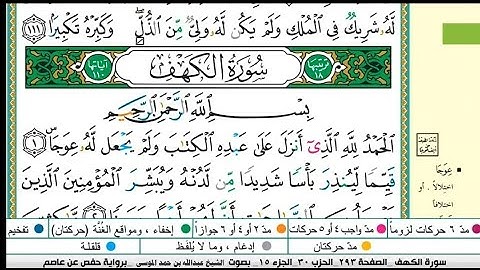 لَّهُۥ شَرِيكٌ فِي ٱلْمُلْكِ وَلَمْ يَكُن لَّهُۥ وَلِيٌّ مِّنَ ٱلذُّلِّ ۖ وَكَبِّرْهُ تَكْبِيرًۢا ١١١
ترتيبها ١٨ سُورَةُ الكَهْفِ آياتها ١١٠
بِسْمِ ٱللَّهِ ٱلرَّحْمَٰنِ ٱلرَّحِيمِ
ٱلْحَمْدُ لِلَّهِ ٱلَّذِىٓ أَنزَلَ عَلَىٰ عَبْدِهِ ٱلْكِتَٰبَ وَلَمْ يَجْعَل لَّهُۥ عِوَجَاۜ ١
قَيِّمًا لِّيُنذِرَ بَأْسًا شَدِيدًا مِّن لَّدُنْهُ وَيُبَشِّرَ ٱلْمُؤْمِنِينَ ٱلَّذِينَ
عِوَجًا
اختلالاً . أو
اختلافاً
قَيِّمًا
مدّ ٦ حركات لزوماً مدّ واجب ٤ أو ٥ حركات مدّ ٢ أو ٤ أو ٦ جوازاً إخفاء ، ومواقع الغُنَّة (حركتان) تفخيم
مدّ حركتان إدغام ، وما لا يُلفَظ قلقلة
سورة الكهف . الصفحة ٢٩٣ . الحزب ٣٠ . الجزء ١٥ . بصوت الشيخ عبدالله بن حمد الموسى . برواية حفص عن عاصم